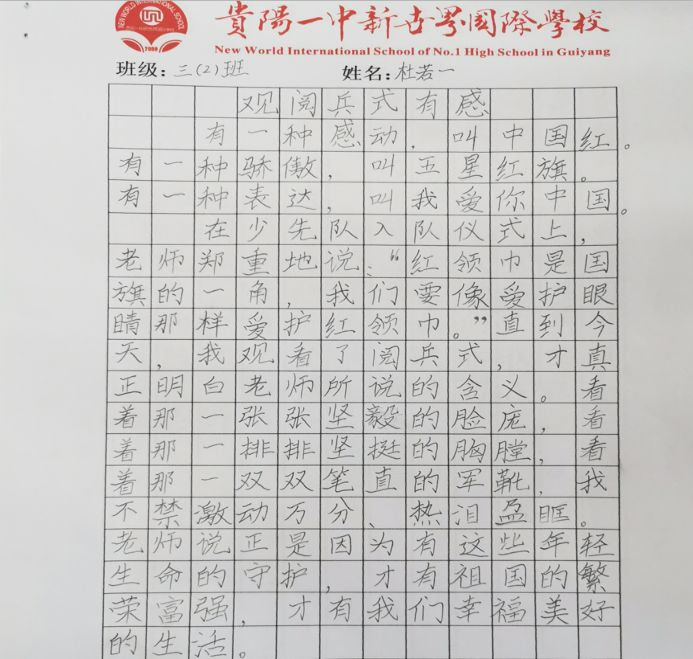 NEW WORLD INTERNATIONAL SCHOOL
2009
貴陽一中新世界國際學校
New World International School of No.1 High School in Guiyang
班级：三(2)班 姓名：杜若一
观阅兵式有感
有一种感动，叫中国红。
有一种骄傲，叫五星红旗。
有一种表达，叫我爱你中国。
在少先队入队仪式上，
老师郑重地说：“红领巾是国
旗的一角，我们要像爱护眼
睛那样爱护红领巾。”直到今
天，我观看了阅兵式，才真
正明白老师所说的含义。看
着那一张张坚毅的脸庞，看
着那一排排坚挺的胸膛，看
着那一双双笔直的军靴，我
不禁激动万分、热泪盈眶。
老师说正是因为有这些年轻
生命的守护，才有祖国的繁
荣富强，才有我们幸福美好
的生活。